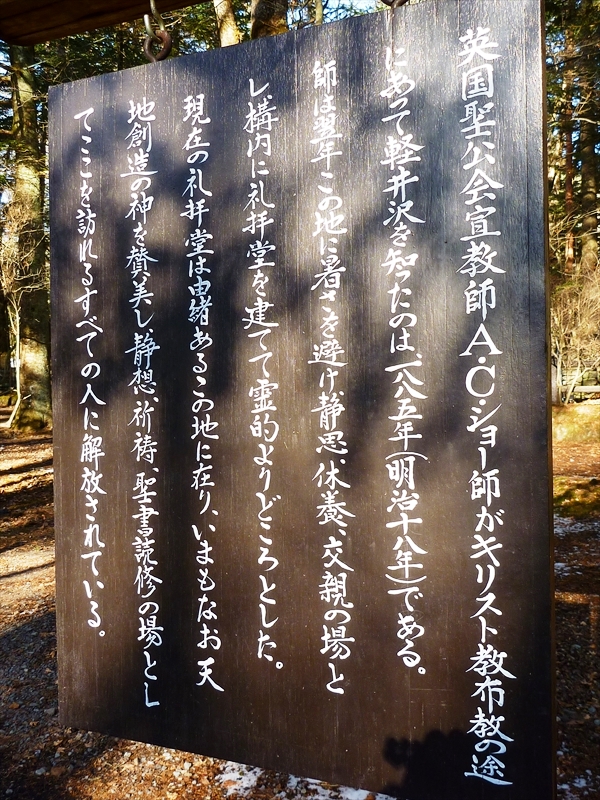 英国聖公会宣教師A・C・ショー師がキリスト教布教の途
にあって軽井沢を知ったのは、一八八五年(明治十八年)である。
師は翌年この地に暑さを避け静思、休養、交親の場と
し、構内に礼拝堂を建てて霊的よりどころとした。
現在の礼拝堂は由緒あるこの地に在り、いまもなお天
地創造の神を賛美し、静想、祈祷、聖書読修の場とし
てここを訪れるすべての人に解放されている。